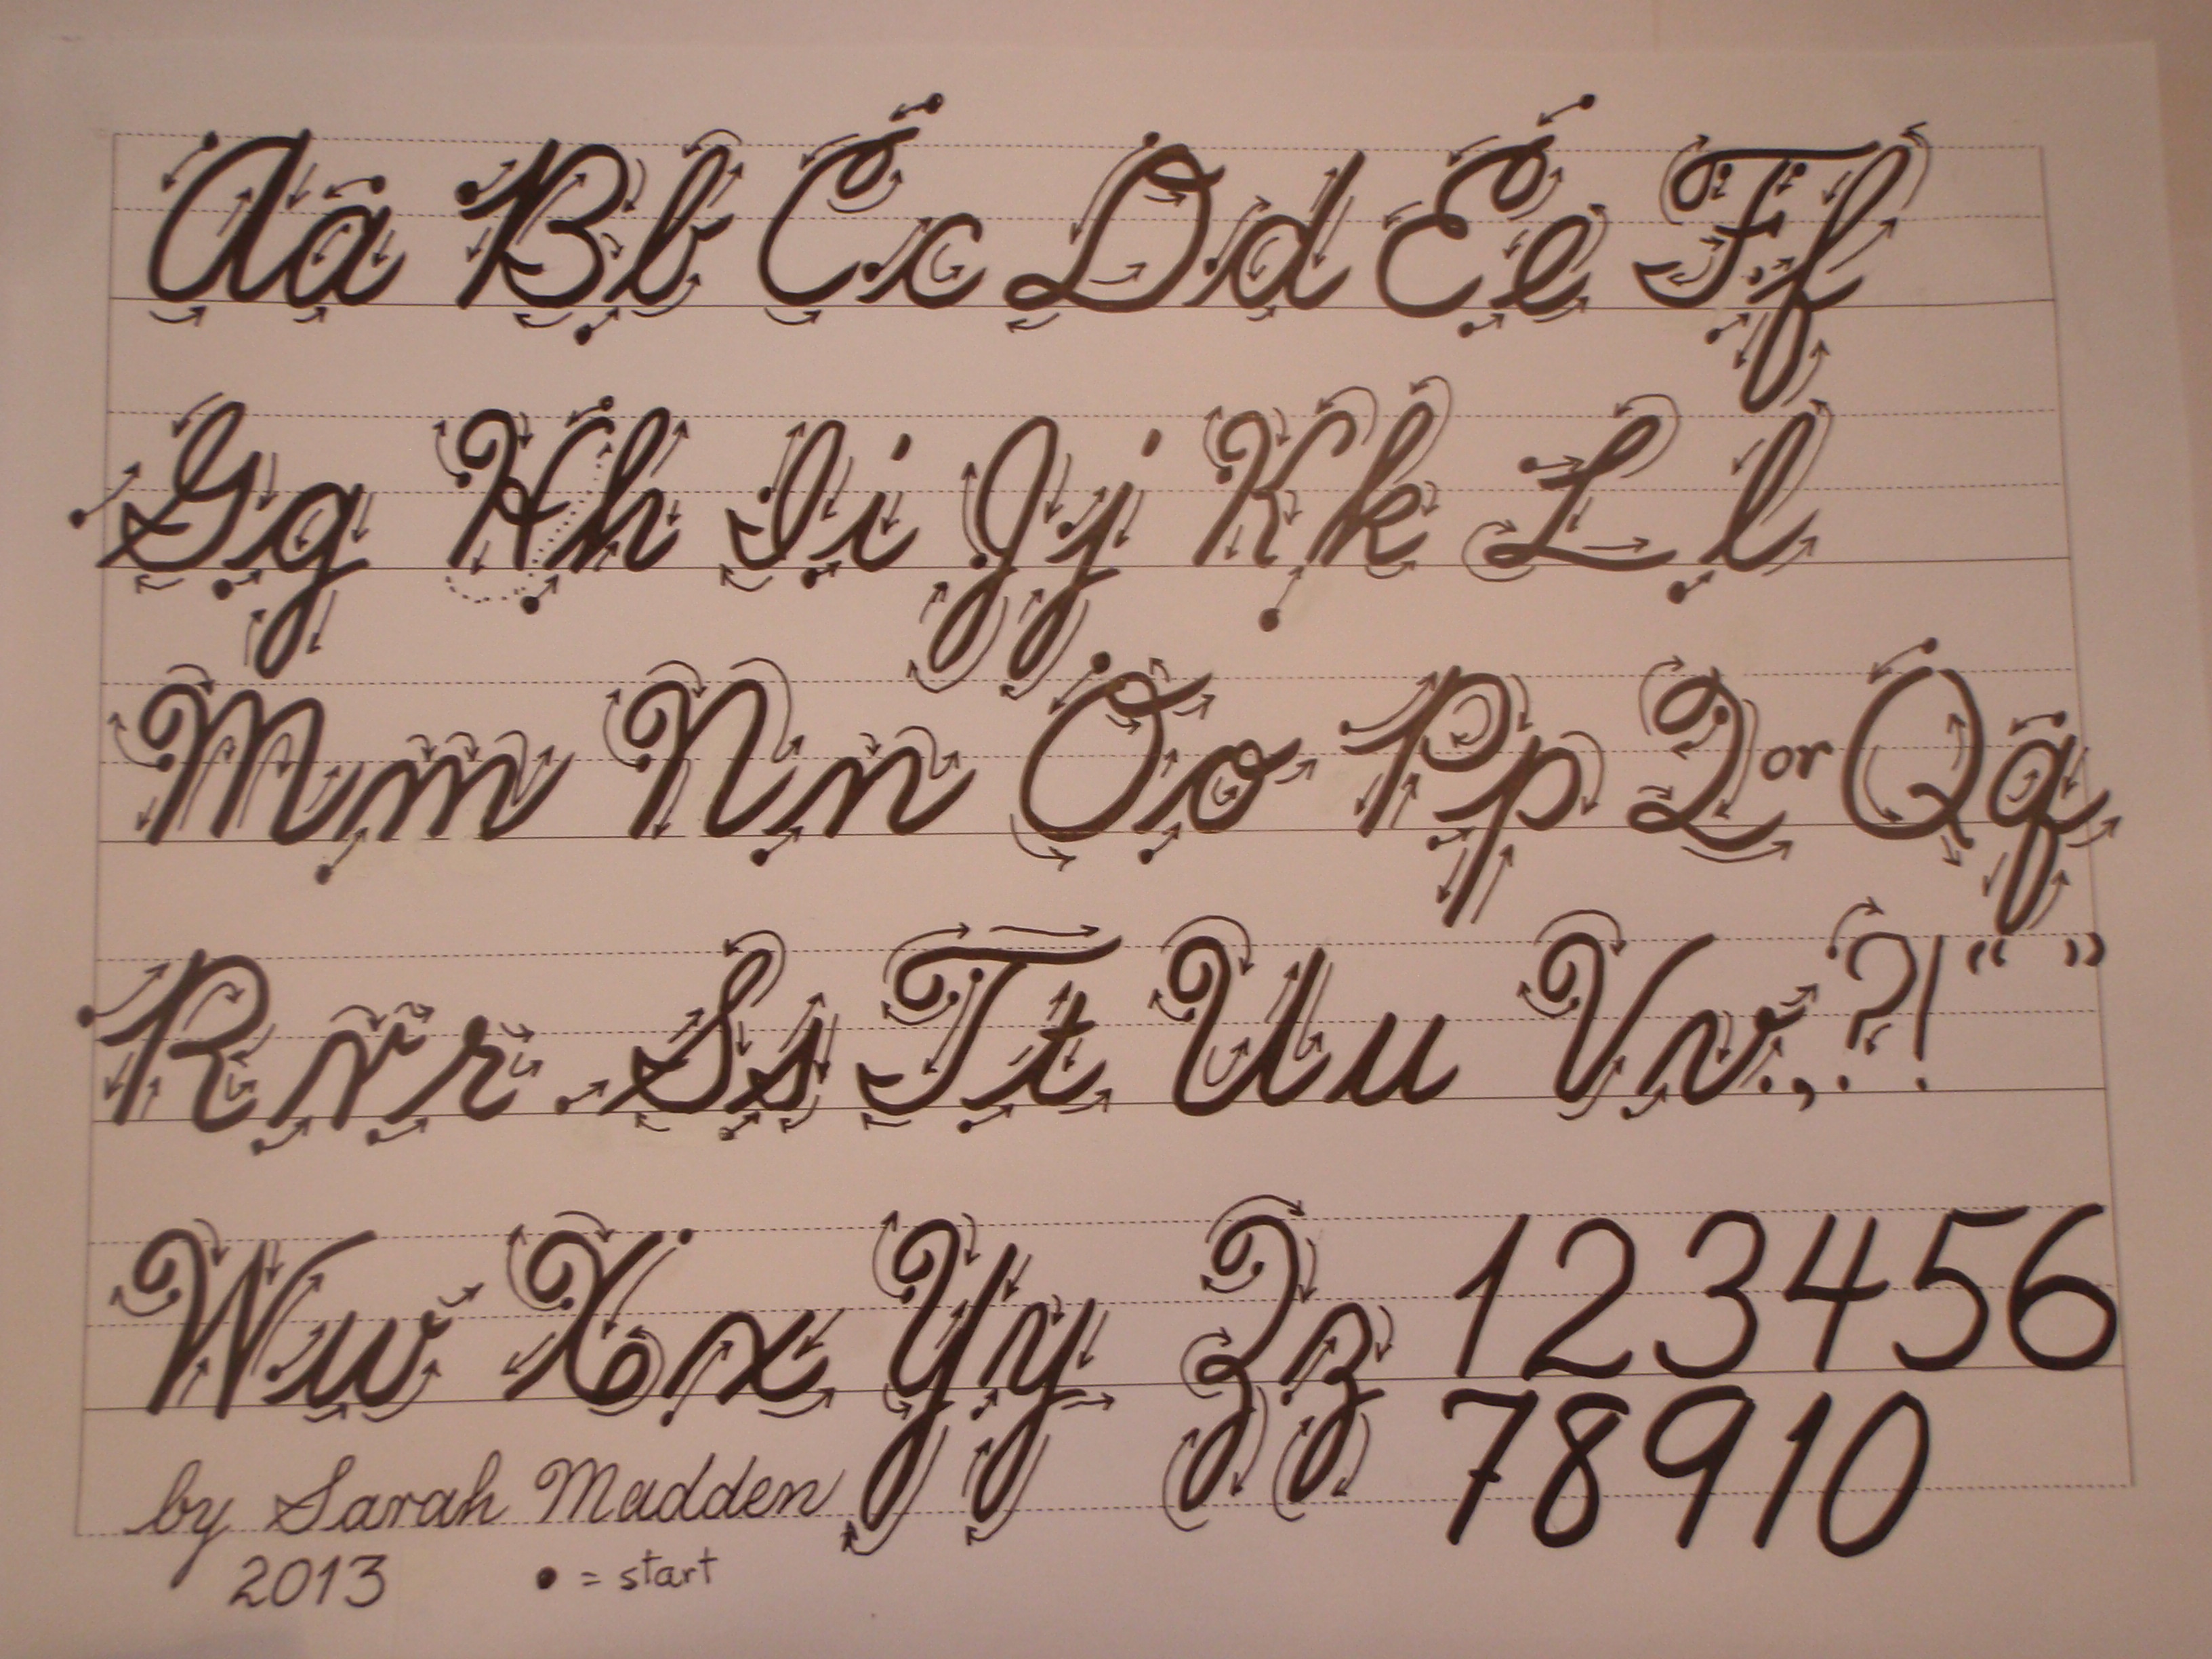 Aa Bb Cc Dd Ee Ff
Gg Hh Ii Jj Kk Ll
Mm Nn Oo Pp Q or Q q
R r r Ss Tt Uu Vv . , ? ! “ ”
Ww Xx Yy Zz 1 2 3 4 5 6
7 8 9 10
by Sarah Madden
2013
• = start